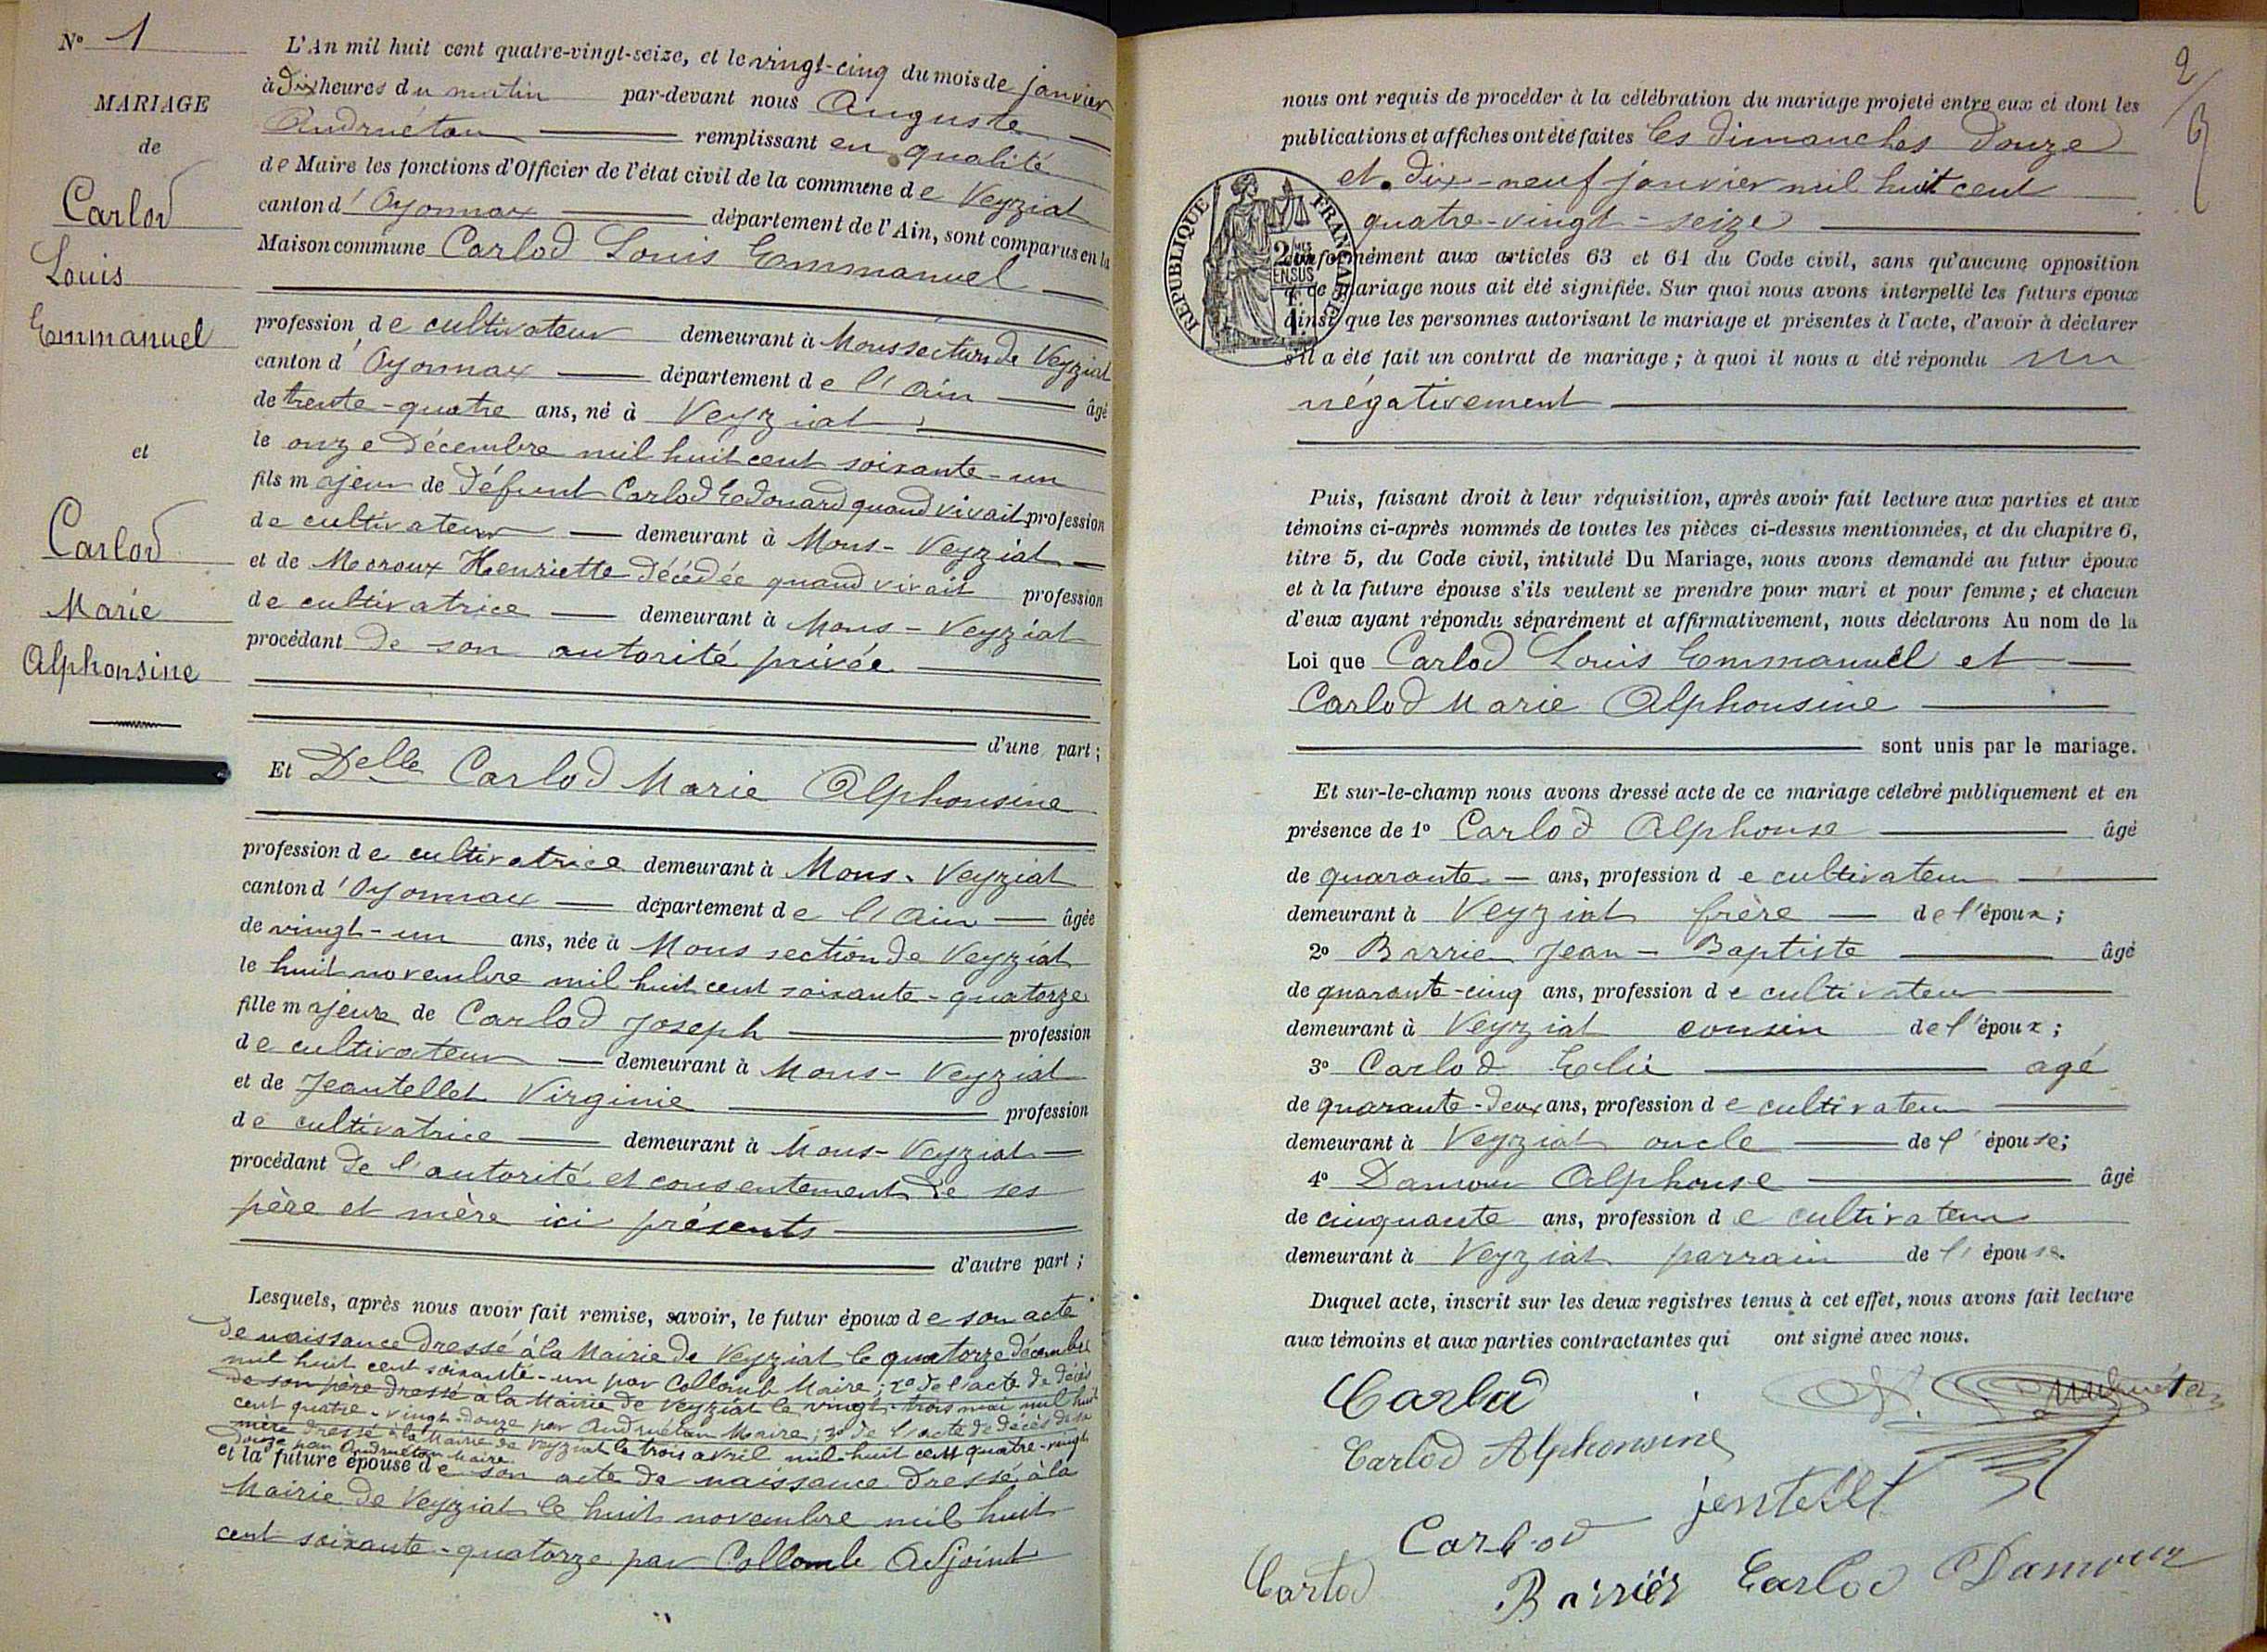 N° 1
MARIAGE
de
Carlod
Louis
Emmanuel
et
Carlod
Marie
Alphonsine
L'An mil huit cent quatre-vingt-seize, et le vingt-cinq du mois de janvier
à Dix heures du matin par-devant nous Auguste
Andruétan remplissant en qualité
de Maire les fonctions d'Officier de l'état civil de la commune de Veyziat
canton d'Oyonnax département de l'Ain, sont comparus en la
Maison commune Carlod Louis Emmanuel
profession de cultivateur demeurant à Mons section de Veyziat
canton d'Oyonnax département de l'Ain âgé
de trente-quatre ans, né à Veyziat
le onze Décembre mil huit cent soixante-un
fils majeur de Défunt Carlod Edouard quand vivait profession
de cultivateur demeurant à Mons-Veyziat
et de Henriette décédée quand vivait profession
de cultivatrice demeurant à Mons-Veyziat
procédant de son autorité privée
d'une part;
Et Delle Carlod Marie Alphonsine
profession de cultivatrice demeurant à Mons-Veyziat
canton d'Oyonnax département de l'Ain âgée
de vingt-un ans, née à Mons section de Veyziat
le huit novembre mil huit cent soixante-quatorze
fille majeure de Carlod Joseph profession
de cultivateur demeurant à Mons-Veyziat
et de Jeantellet Virginie profession
de cultivatrice demeurant à Mons-Veyziat
procédant de l'autorité et consentement de ses
père et mère ici présents
d'autre part;
Lesquels, après nous avoir fait remise, savoir, le futur époux de son acte
de naissance Dressé à la Mairie de Veyziat le quatorze Décembre
mil huit cent soixante-un par Collomb Maire; 2° de l'acte de décès
de son père dressé à la Mairie de Veyziat le vingt-trois mai mil huit
cent quatre-vingt-douze par Andruétan Maire; 3° de l'acte de décès de sa
mère dressé à la Mairie de Veyziat le trois avril mil huit cent quatre-vingt
douze par Andruétan Maire
et la future épouse de son acte de naissance Dressé à la
Mairie de Veyziat le huit novembre mil huit
cent soixante-quatorze par Collomb Adjoint
2
nous ont requis de procéder à la célébration du mariage projeté entre eux et dont les
publications et affiches ont été faites les dimanches douze
et dix-neuf janvier mil huit cent
quatre-vingt-seize
RÉPUBLIQUE FRANÇAISE
conformément aux articles 63 et 64 du Code civil, sans qu'aucune opposition
à ce mariage nous ait été signifiée. Sur quoi nous avons interpellé les futurs époux
ainsi que les personnes autorisant le mariage et présentes à l'acte, d'avoir à déclarer
s'il a été fait un contrat de mariage; à quoi il nous a été répondu
négativement
Puis, faisant droit à leur réquisition, après avoir fait lecture aux parties et aux
témoins ci-après nommés de toutes les pièces ci-dessus mentionnées, et du chapitre 6,
titre 5, du Code civil, intitulé Du Mariage, nous avons demandé au futur époux
et à la future épouse s'ils veulent se prendre pour mari et pour femme; et chacun
d'eux ayant répondu séparément et affirmativement, nous déclarons Au nom de la
Loi que Carlod Louis Emmanuel et
Carlod Marie Alphonsine
sont unis par le mariage.
Et sur-le-champ nous avons dressé acte de ce mariage célébré publiquement et en
présence de 1° Carlod Alphonse âgé
de quarante ans, profession de cultivateur
demeurant à Veyziat frère de l'époux;
2° Barrier Jean-Baptiste âgé
de quarante-cinq ans, profession de cultivateur
demeurant à Veyziat cousin de l'époux;
3° Carlod Elie agé
de quarante-deux ans, profession de cultivateur
demeurant à Veyziat oncle de l'épouse;
4° Damour Alphonse âgé
de cinquante ans, profession de cultivateur
demeurant à Veyziat parrain de l'épouse.
Duquel acte, inscrit sur les deux registres tenus à cet effet, nous avons fait lecture
aux témoins et aux parties contractantes qui ont signé avec nous.
Carlod
A. Andruétan
Carlod Alphonsine
jentellet
Carlod
Carlod Barrier Carlod Damour